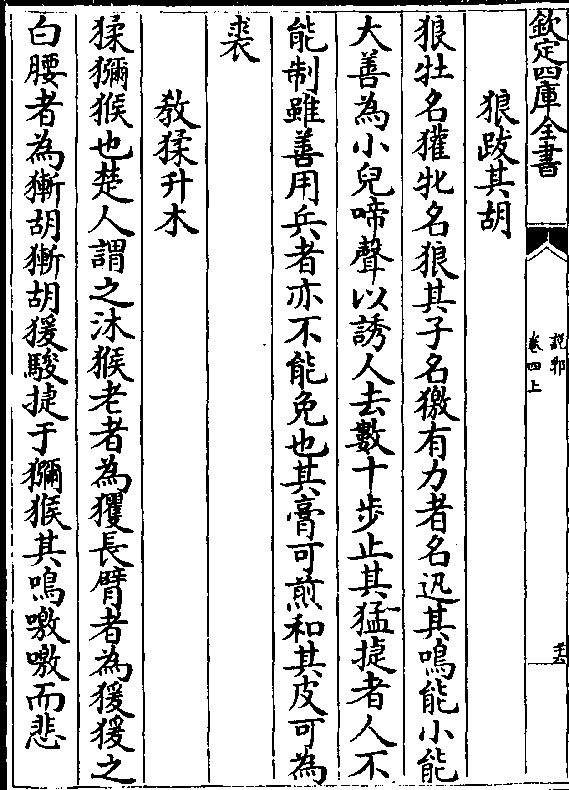 欽定四庫全書
説郛
卷四上
狼跋其胡
狼牡名獾牝名狼其子名獥有力者名迅其鳴能小能
大善為小兒啼聲以誘人去數十步止其猛捷者人不
能制雖善用兵者亦不能免也其膏可煎和其皮可為
裘
教猱升木
猱獮猴也楚人謂之沐猴老者為玃長臂者為猨猨之
白腰者為獑胡獑胡猨駿捷于獮猴其鳴噭噭而悲